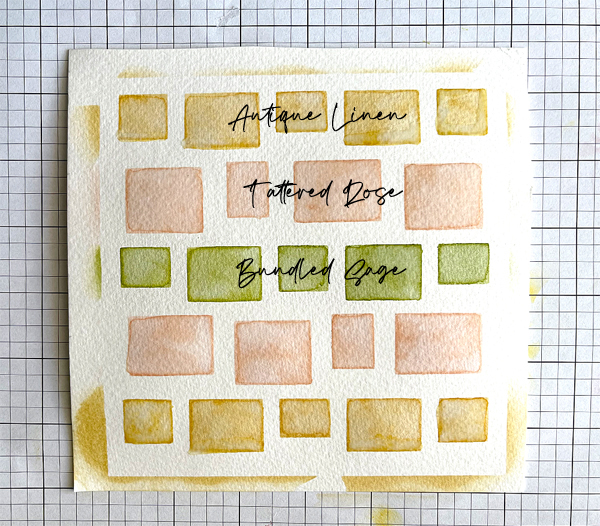 Antique Linen
Tattered Rose
Bundled Sage